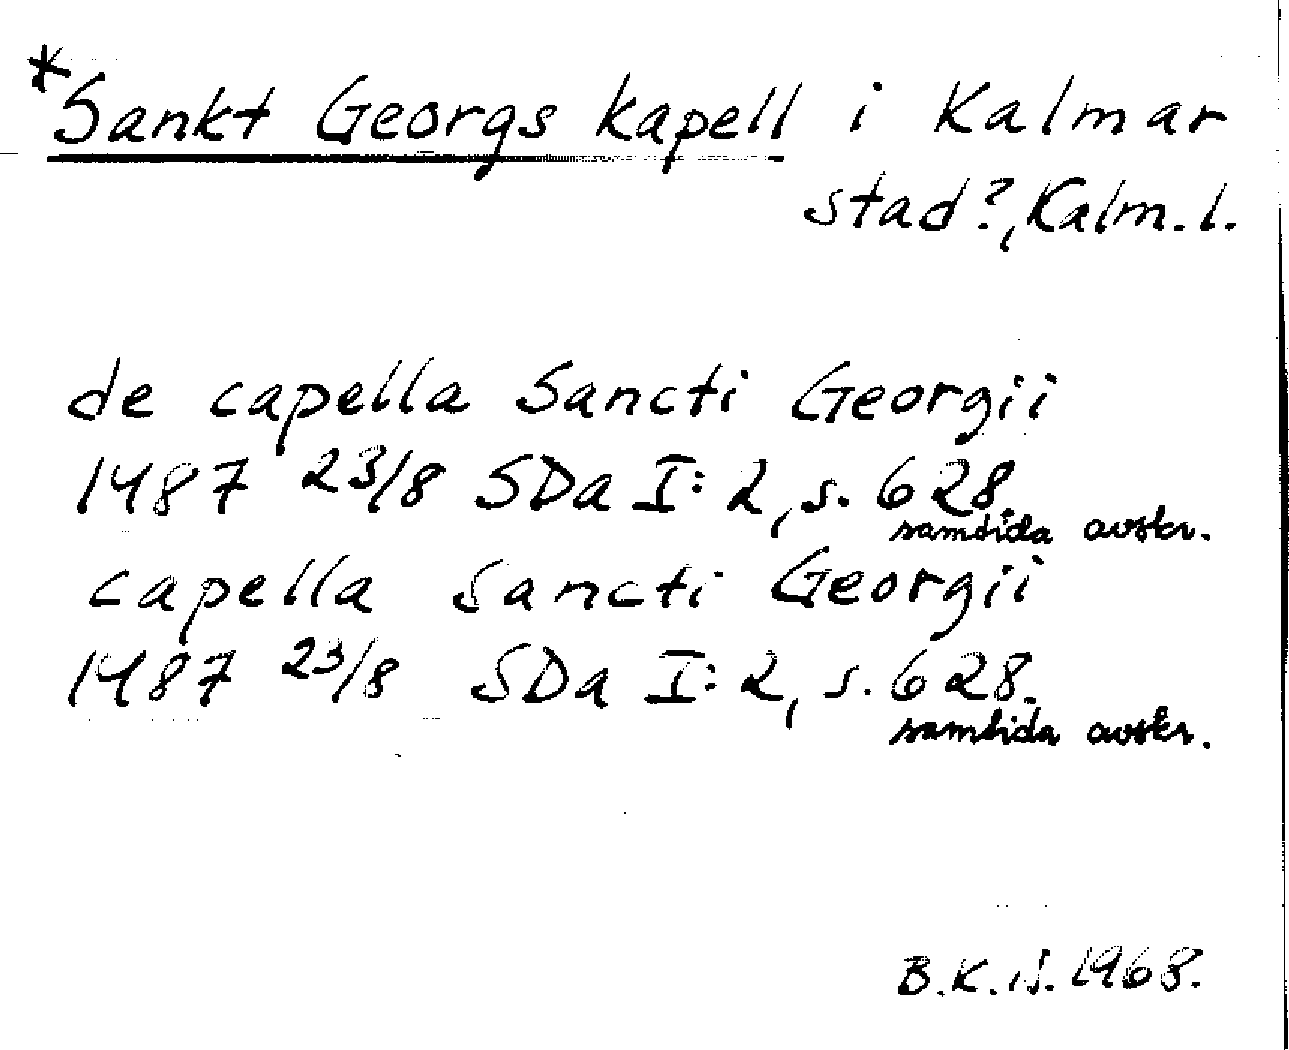 *Sankt Georgs kapell i Kalmar
stad?, Kalm. l.
de capella Sancti Georgii
1487 23/8 SDa I:2, s. 628.
samtida avskr.
capella Sancti Georgii
1487 23/8 SDa I:2, s. 628.
samtida avskr.
B.K.-S. 1968.